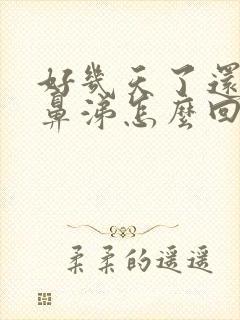 好幾天了還
鼻涕怎麼回
柔柔的遥遥